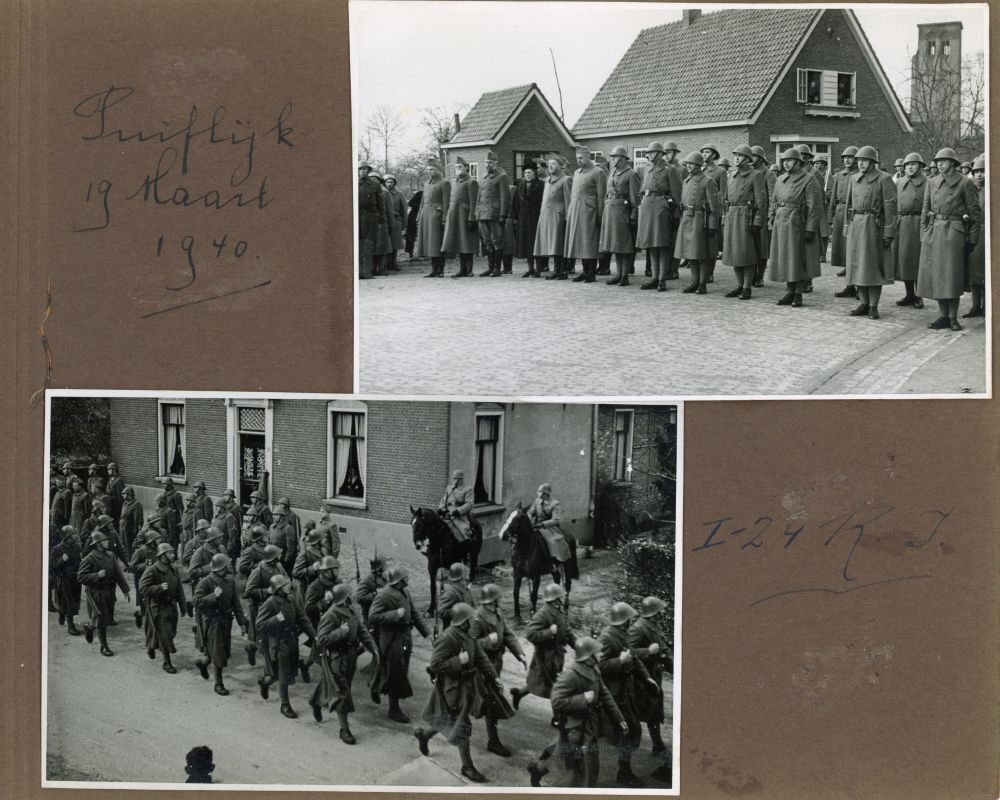 Puiflijk
19 Maart
1940.
I-24 R.I.